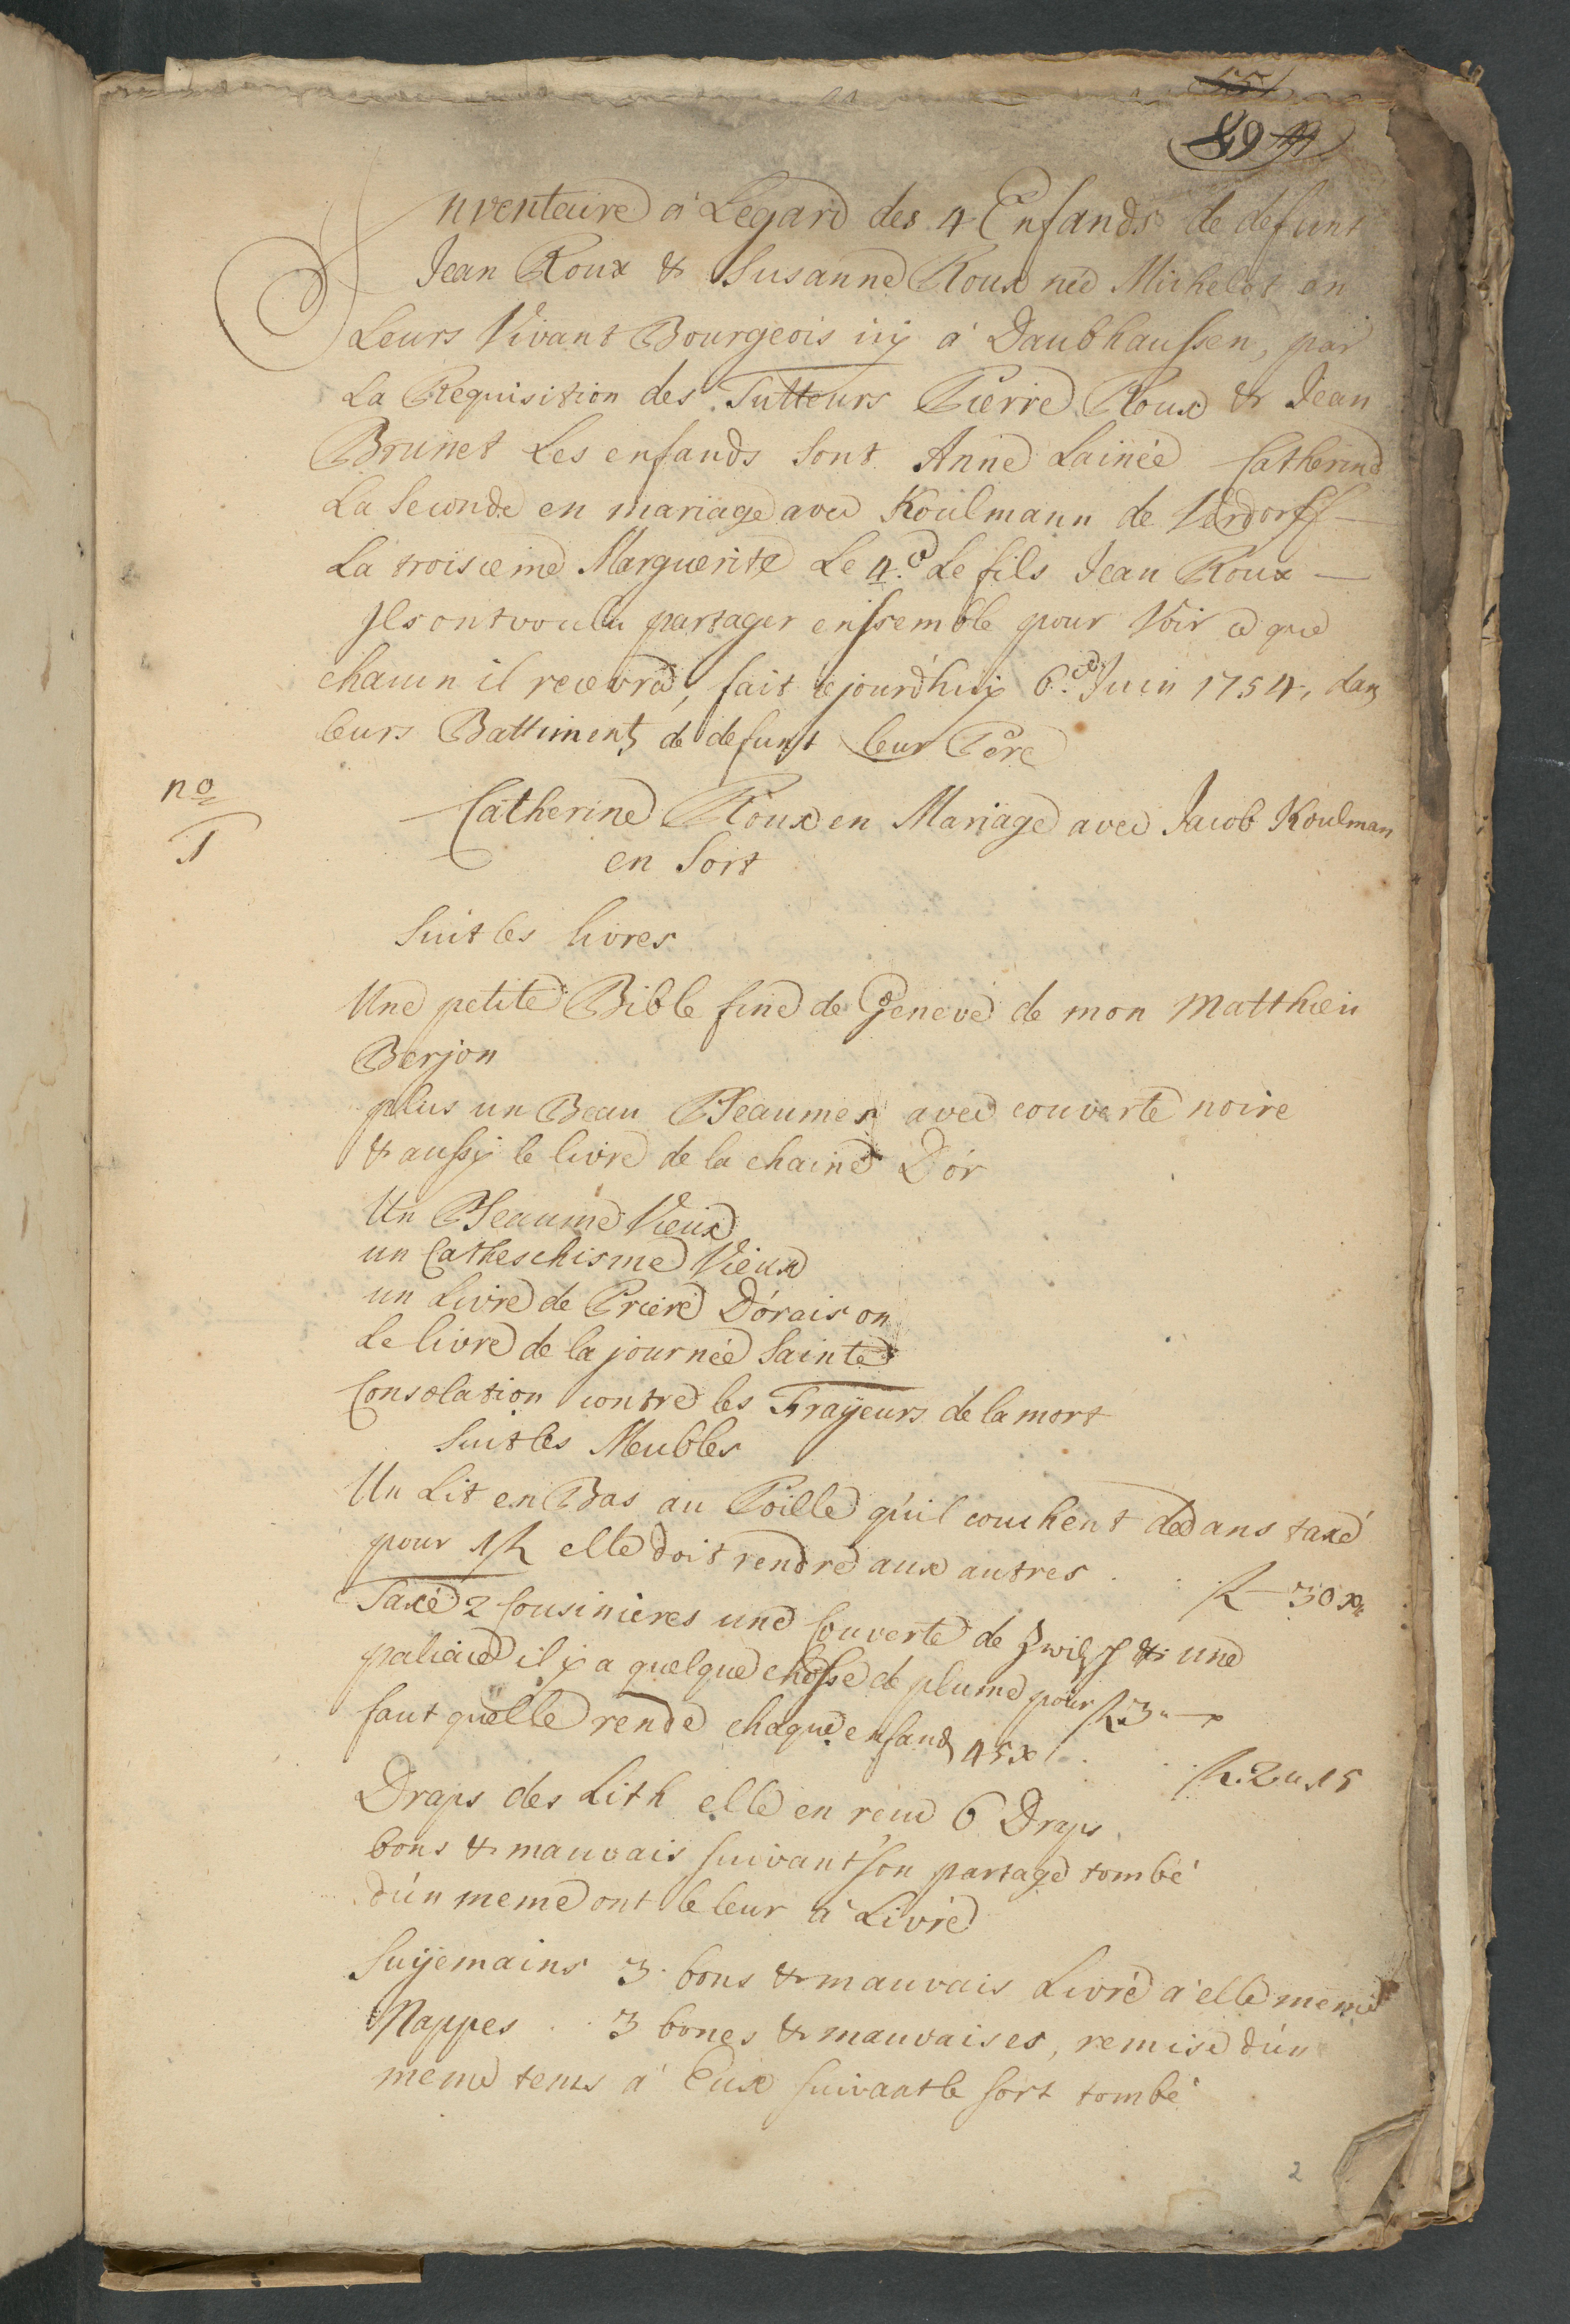 89
Inventaire a Legard des 4 Enfands de defunt
Jean Roux & Susanne Roux née Michelot en
Leurs Vivant Bourgeois icy a Daubhaussen, par
La Requisition des Tutteurs Pierre Roux & Jean
Brunet Les enfands sont Anne Lainée Catherine
La Seconde en mariage avec Koulmann de Verdorff
La troisieme Marguerite Le 4.e Le fils Jean Roux
Ils ont voulu partager enssemble pour Voir ce que
chacun il recevra, fait cejourd'huy 6.e Juin 1754, dans
leurs Battiments de defunt leur Pere
no
1
Catherine Roux en Mariage avec Jacob Koulman
en Sort
Suit les livres
Une petite Bible fine de Geneve de mon Matthieu
Berjon
plus un Beau Pseaumes avec couverte noire
& aussy le livre de la chaine D'or
Un Pseaume Vieux
un Catheschisme Vieux
un Livre de Priere D'oraison
Le livre de la journée Sainte
Consolation contre les Frayeurs de la mort
Suit les Meubles
Un Lit en Bas au Poille qu'il couchent dedans taxé
pour 1 f. elle doit rendre aux autres . . f. 30 x
Taxé 2 Cousinieres une Couverte de Zwilch & une
paliace il y a quelque chosse de plume pour f. 3
faut quelle rende chaque enfand 45 x . . f. 2 15
Draps des Lith elle en reçu 6 Draps
bons & mauvais suivant son partage tombé
d'un meme ont le leur a Livré
Suyemains 3. bons & mauvais Livré a elle meme
Nappes . . 3 bones & mauvaises, remise d'un
meme tems a Eux suivant le sort tombé
2